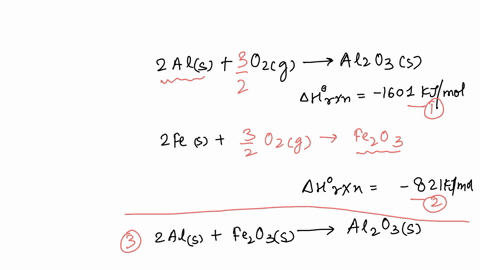 2Al(s) + 3/2 O2(g) → Al2O3(s)
ΔH°rxn = -1601 KJ/mol
①
2Fe(s) + 3/2 O2(g) → Fe2O3
ΔH°rxn = -821KJ/mol
②
③ 2Al(s) + Fe2O3(s) → Al2O3(s)